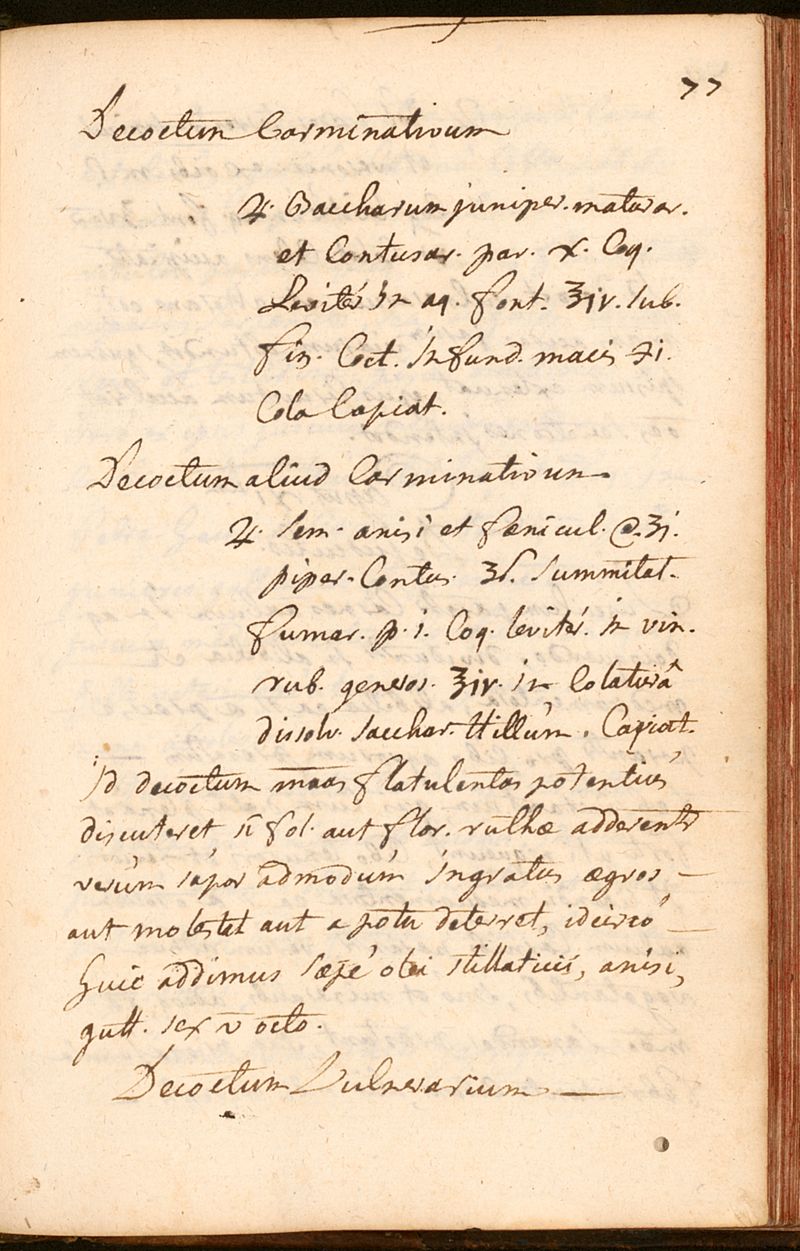 77
Decoctum Carminativum
♃. Baccharum juniper. maturar.
et Contusar. par. x. Coq.
Levitér in aq. font. ℥iv. sub.
fin. Coct. infund. macis ʒi.
Cola Capiat.
Decoctum aliud Carminativum
♃. Sem. anisi et fænicul. @. ʒi.
piper. Contus. ʒß. Summitat.
fumar. p. i. Coq. levitér. in vin.
rub. generos. ℥iv. in Colaturâ
dissolv. sacchar. tillúm. Capiat.
id decoctum maas flatulentas potentiús
discuteret, si fol. aut flor. ruthæ adderentr
verúm sápor admodúm ingratus ægros —
aut molestet aut a potu deterret, idcircó —
huic addimus sæpé olei stillaticii, anisi,
gutt. sex v octo.
Decoctum Vulnerarium —